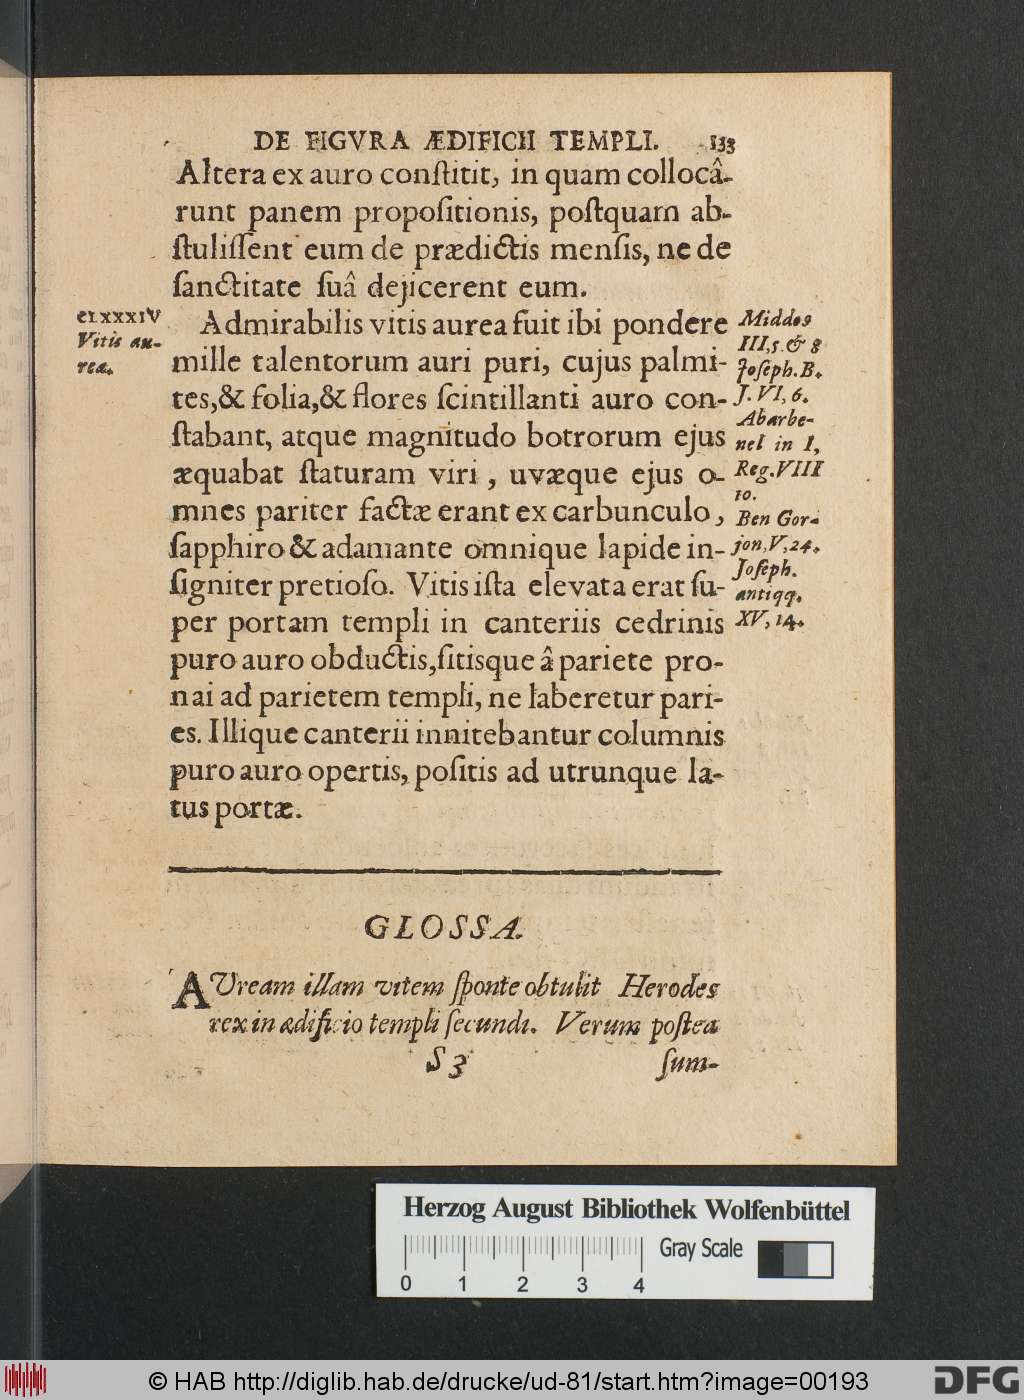 DE FIGVRA ÆDIFICII TEMPLI. 133
Altera ex auro conſtitit, in quam collocâ-
runt panem propoſitionis, poſtquam ab-
ſtuliſſent eum de prædictis menſis, ne de
ſanctitate ſuâ dejicerent eum.
clxxxiV
Vitis au-
rea.
Admirabilis vitis aurea fuit ibi pondere
mille talentorum auri puri, cujus palmi-
tes,& folia,& flores ſcintillanti auro con-
ſtabant, atque magnitudo botrorum ejus
æquabat ſtaturam viri, uvæque ejus o-
mnes pariter factæ erant ex carbunculo,
ſapphiro & adamante omnique lapide in-
ſigniter pretioſo. Vitis iſta elevata erat ſu-
per portam templi in canteriis cedrinis
puro auro obductis,ſitisque â pariete pro-
nai ad parietem templi, ne laberetur pari-
es. Illique canterii innitebantur columnis
puro auro opertis, poſitis ad utrunque la-
tus portæ.
Middos
III,5.& 8
Joſeph.B.
J.VI,6.
Abarbe-
nel in 1,
Reg.VIII
10.
Ben Gor-
jon,V,24.
Joſeph.
antiqq.
XV,14.
GLOSSA.
AVream illam vitem ſponte obtulit Herodes
rex in ædificio templi ſecundi. Verum poſtea
S 3 ſum-
Herzog August Bibliothek Wolfenbüttel
Gray Scale
0 1 2 3 4
© HAB http://diglib.hab.de/drucke/ud-81/start.htm?image=00193
DFG